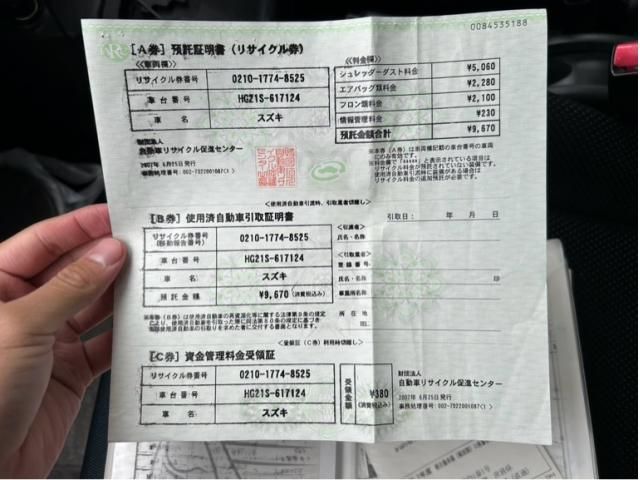 0084535188
[A券] 預託証明書(リサイクル券)
≪車両欄≫
リサイクル券番号 0210-1774-8525
車台番号 HG21S-617124
車名 スズキ
≪料金欄≫
シュレッダーダスト料金 ¥5,060
エアバッグ類料金 ¥2,280
フロン類料金 ¥2,100
情報管理料金 ¥230
預託金額合計 ¥9,670
財団法人
自動車リサイクル促進センター
2007年 6月25日発行
※本券(A券)は車両欄記載の車台番号の車両
にのみ有効です。
<使用済自動車引渡時、引取業者切離し>
[B券] 使用済自動車引取証明書
引取日: 年 月 日
リサイクル券番号
(移動報告番号) 0210-1774-8525
車台番号 HG21S-617124
車名 スズキ
預託金額 ¥9,670(消費税込み)
<引渡者>
氏名・名称
<引取業者>
登録番号
氏名・名称 印
事業所名称
所在地
TEL
[C券] 資金管理料金受領証
リサイクル券番号 0210-1774-8525
車台番号 HG21S-617124
車名 スズキ
受領金額 ¥380
(消費税込み)
財団法人
自動車リサイクル促進センター
2007年 6月25日発行